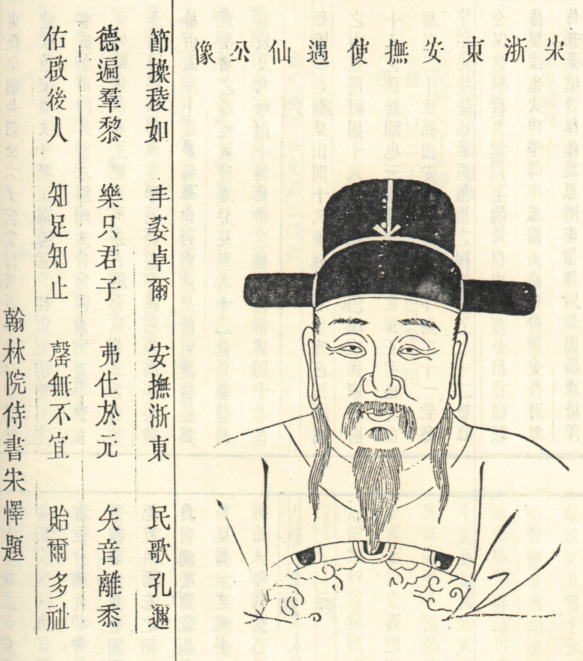 宋浙東安撫使遇仙公像
節操稜如 丰姿卓爾 安撫浙東 民歌孔邇
德遍羣黎 樂只君子 弗仕於元 矢音離黍
佑啟後人 知足知止 罄無不宜 貽爾多祉
翰林院侍書朱懌題